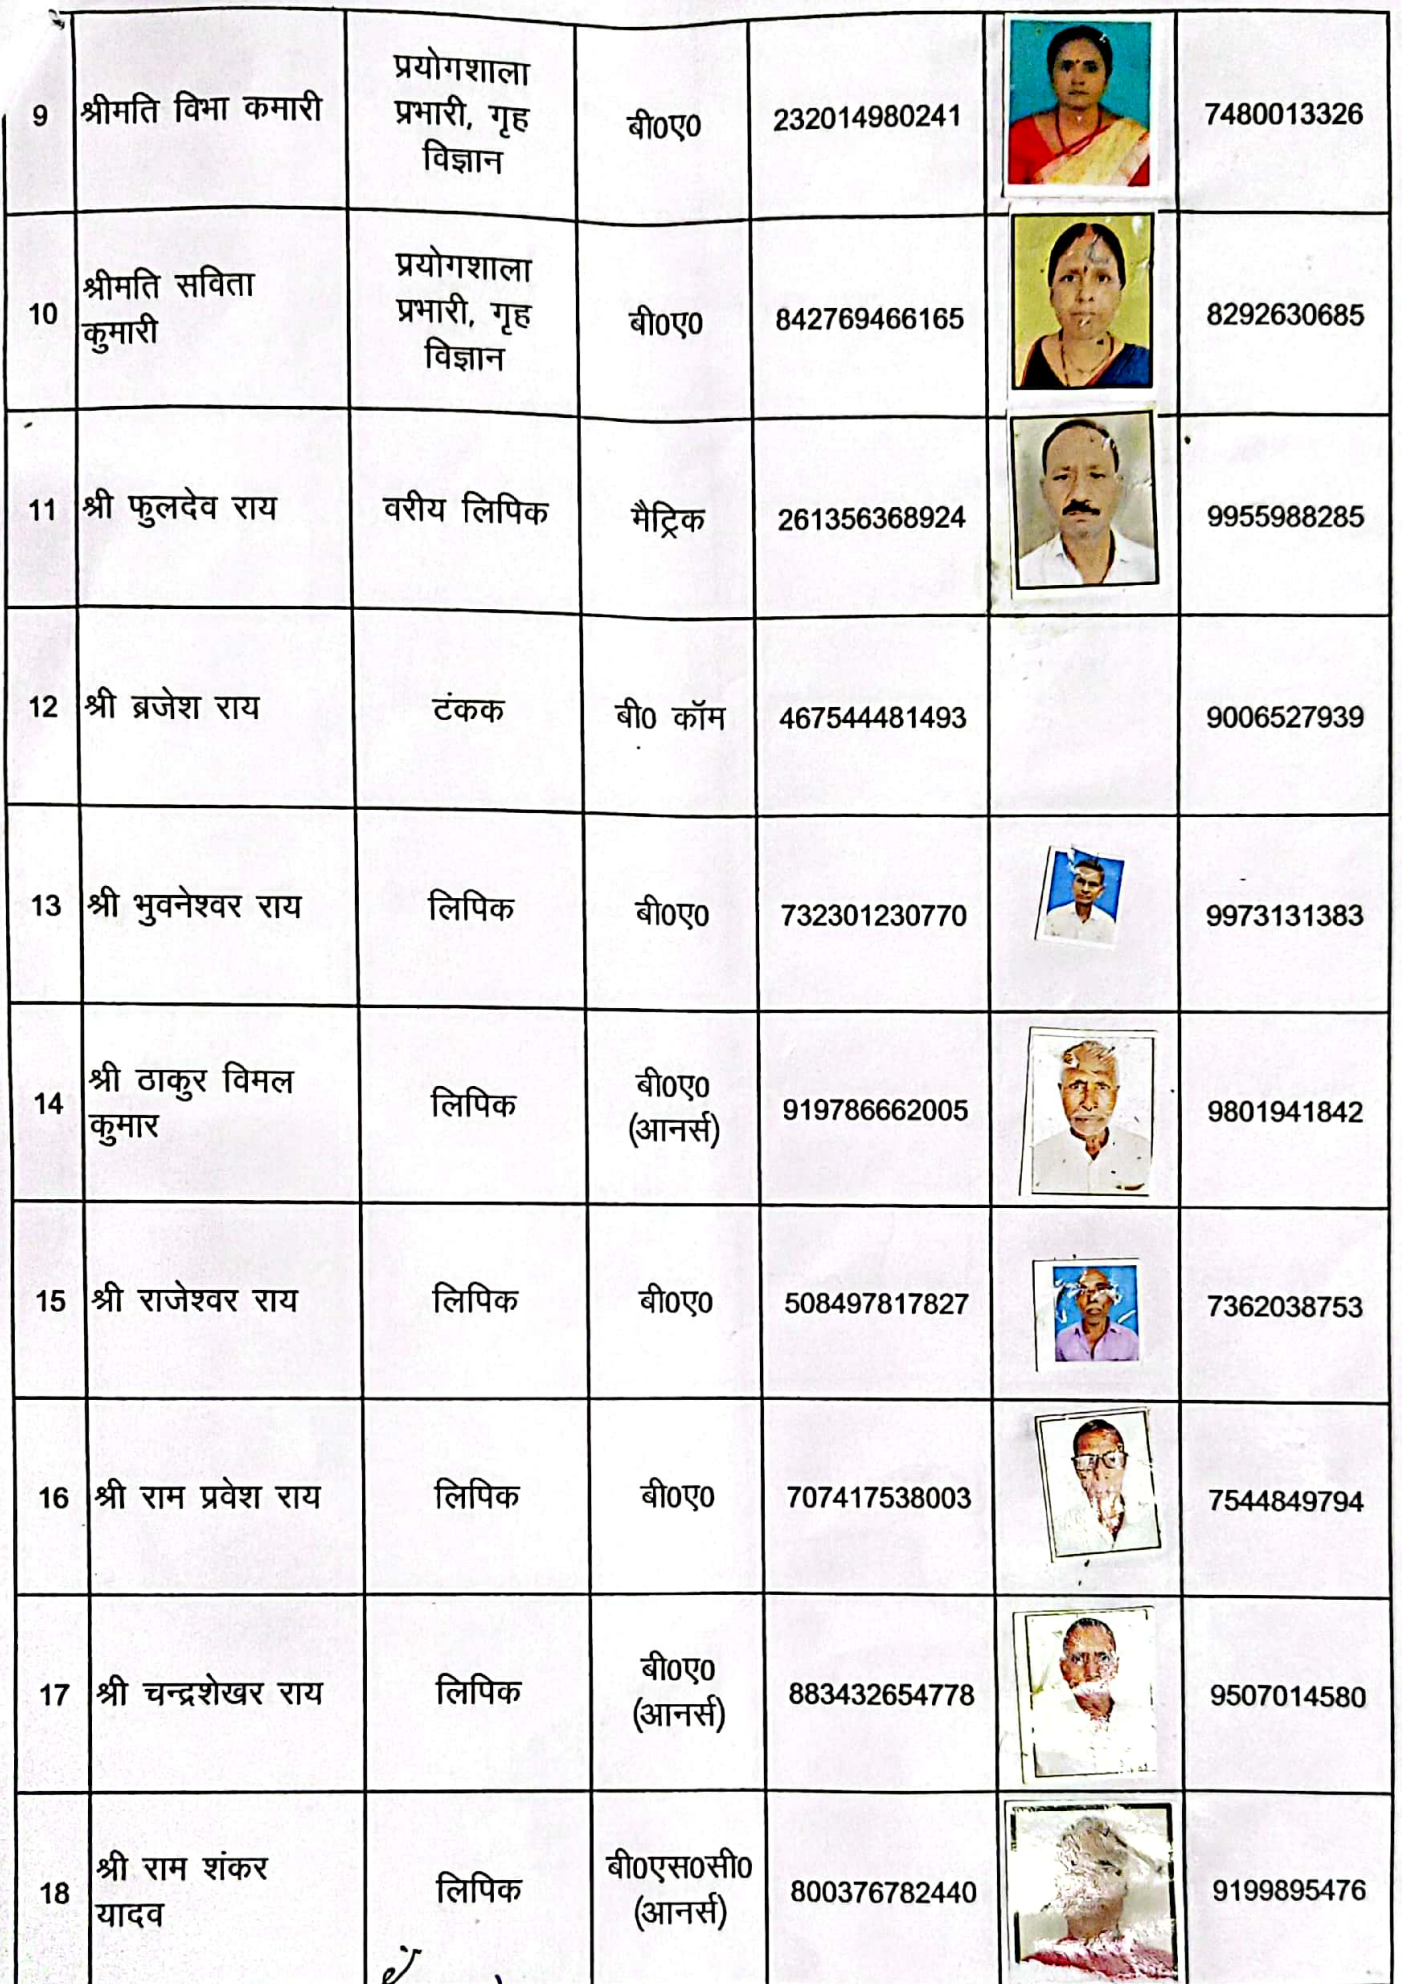 9 श्रीमति विभा कमारी प्रयोगशाला प्रभारी, गृह विज्ञान बी0ए0 232014980241 7480013326
10 श्रीमति सविता कुमारी प्रयोगशाला प्रभारी, गृह विज्ञान बी0ए0 842769466165 8292630685
11 श्री फुलदेव राय वरीय लिपिक मैट्रिक 261356368924 9955988285
12 श्री ब्रजेश राय टंकक बी0 कॉम 467544481493 9006527939
13 श्री भुवनेश्वर राय लिपिक बी0ए0 732301230770 9973131383
14 श्री ठाकुर विमल कुमार लिपिक बी0ए0 (आनर्स) 919786662005 9801941842
15 श्री राजेश्वर राय लिपिक बी0ए0 508497817827 7362038753
16 श्री राम प्रवेश राय लिपिक बी0ए0 707417538003 7544849794
17 श्री चन्द्रशेखर राय लिपिक बी0ए0 (आनर्स) 883432654778 9507014580
18 श्री राम शंकर यादव लिपिक बी0एस0सी0 (आनर्स) 800376782440 9199895476